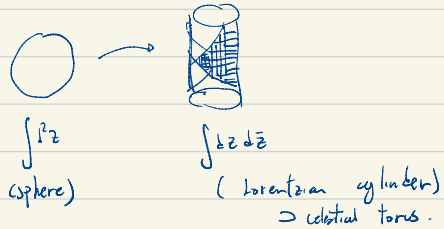 ∫d²z
∫dz dz̄
(sphere)
(Lorentzian cylinder)
⊃ celestial torus.